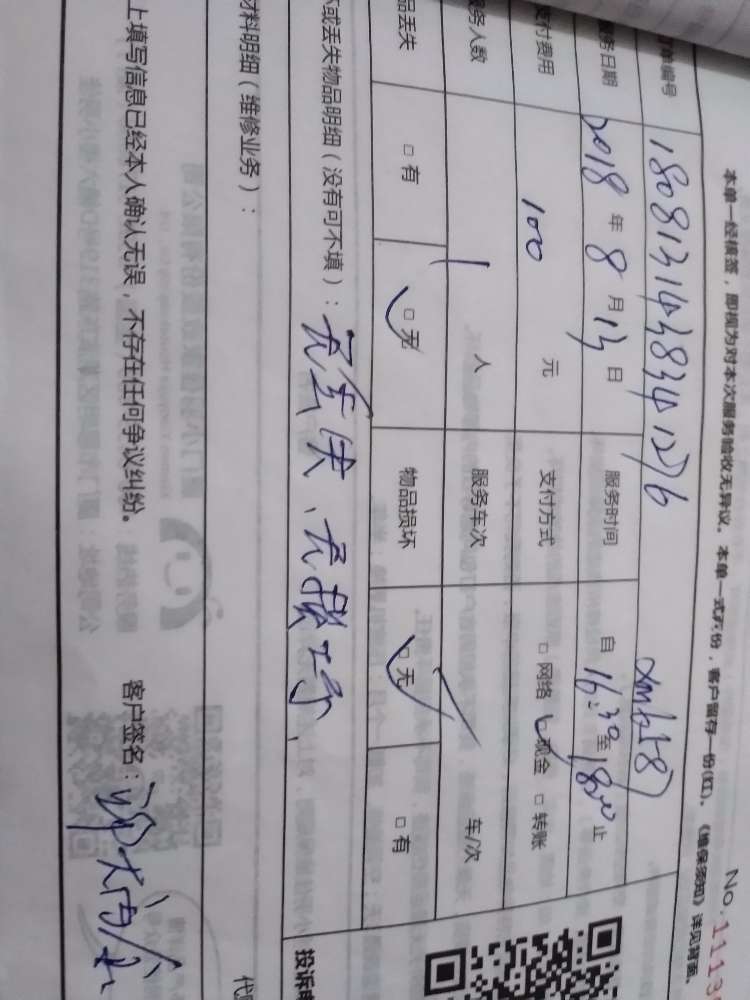 No.1113
本单一经核签，即视为对本次服务验收无异议。本单一式两份，客户留存一份(红)。《维保须知》详见背面。
单编号 180813143834 1276
务日期 2018年8月13日 服务时间 自16:30至18:00止
支付费用 100元 支付方式 □网络 ✓现金 □转账
服务人数 1人 服务车次 车/次
品丢失 □有 □无 物品损坏 □无 □有
或丢失物品明细（没有可不填）：无丢失、无损坏，
材料明细（维修业务）：
上填写信息已经本人确认无误，不存在任何争议纠纷。 客户签名：
投诉